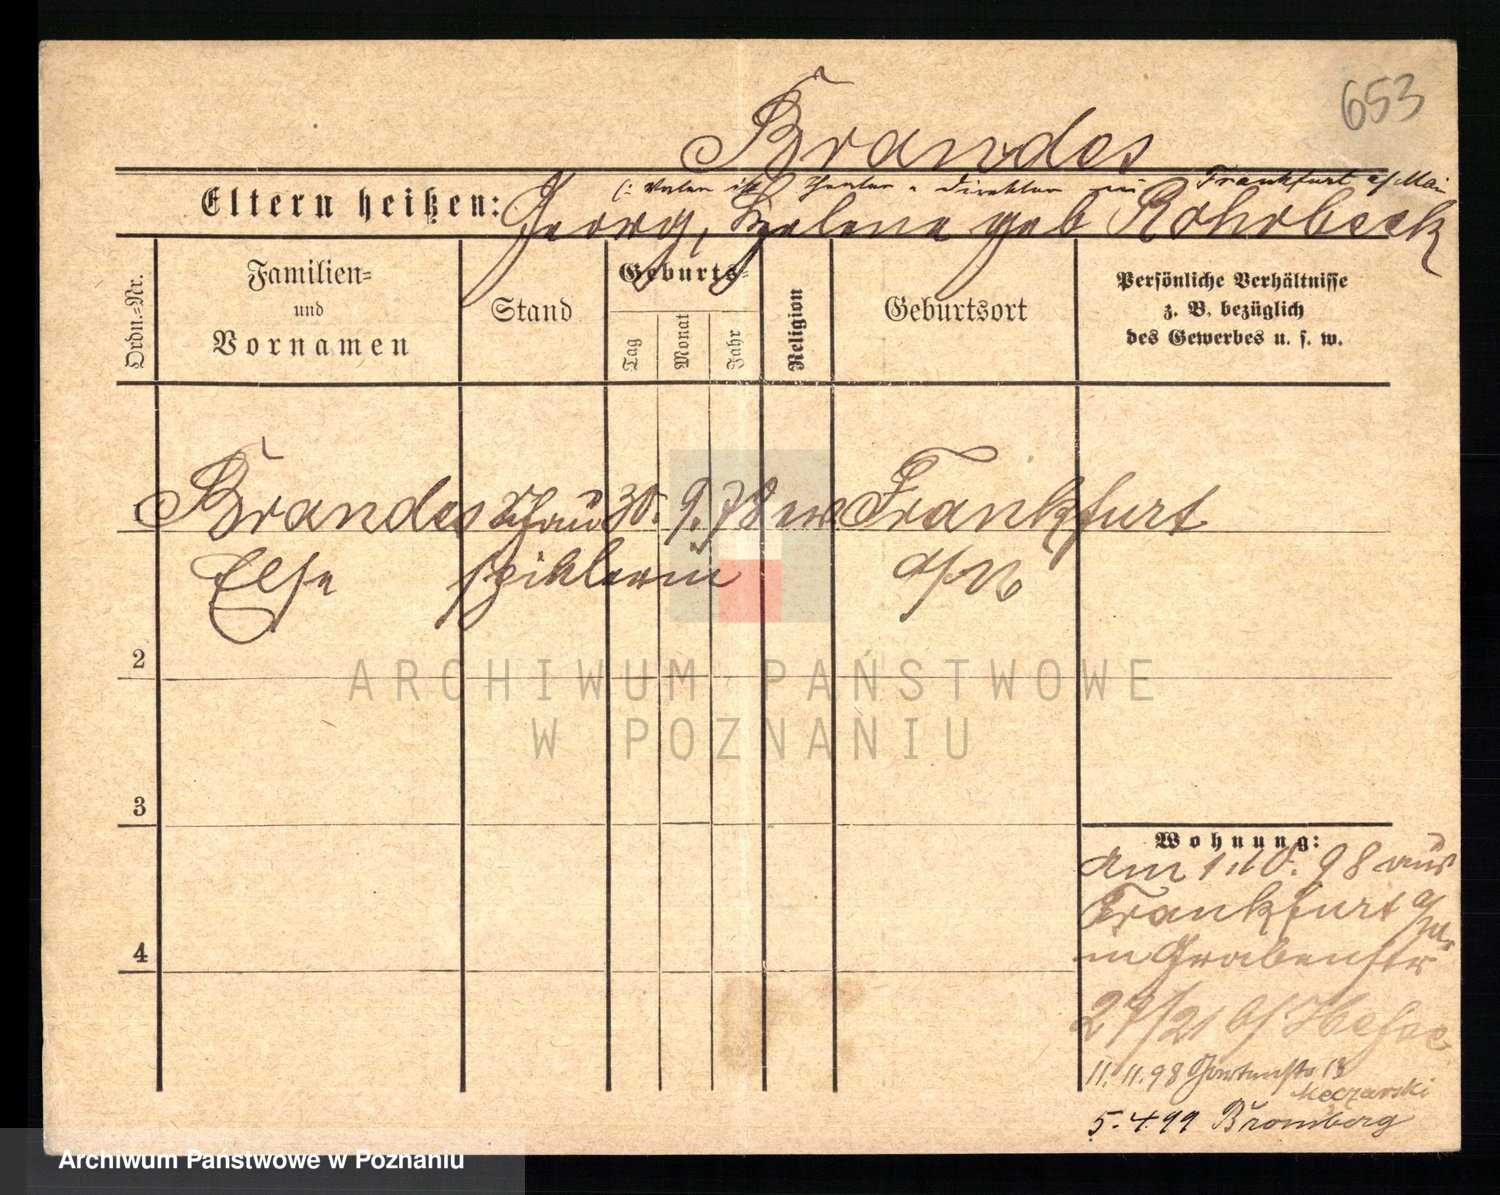 653
Brandes
(: Vater ist Theater-Direktor in Frankfurt a/Main
Eltern heißen: Georg, Helene geb Rohrbeck
Ordn.=Nr.
Familien=
und
Vornamen
Stand
Geburts=
Tag
Monat
Jahr
Religion
Geburtsort
Persönliche Verhältnisse
z. B. bezüglich
des Gewerbes u. s. w.
1 Brandes Schau 30. 9. 78 ev Frankfurt
Else spielerin a/M
2
3
4
Wohnung:
am 1.10.98 aus
Frankfurt a/M
in Grabenstr
27/21 b/ Hesse
11.11.98 Gartenstr 13
5.4.99 Bromberg
ARCHIWUM PAŃSTWOWE
W POZNANIU
Archiwum Państwowe w Poznaniu